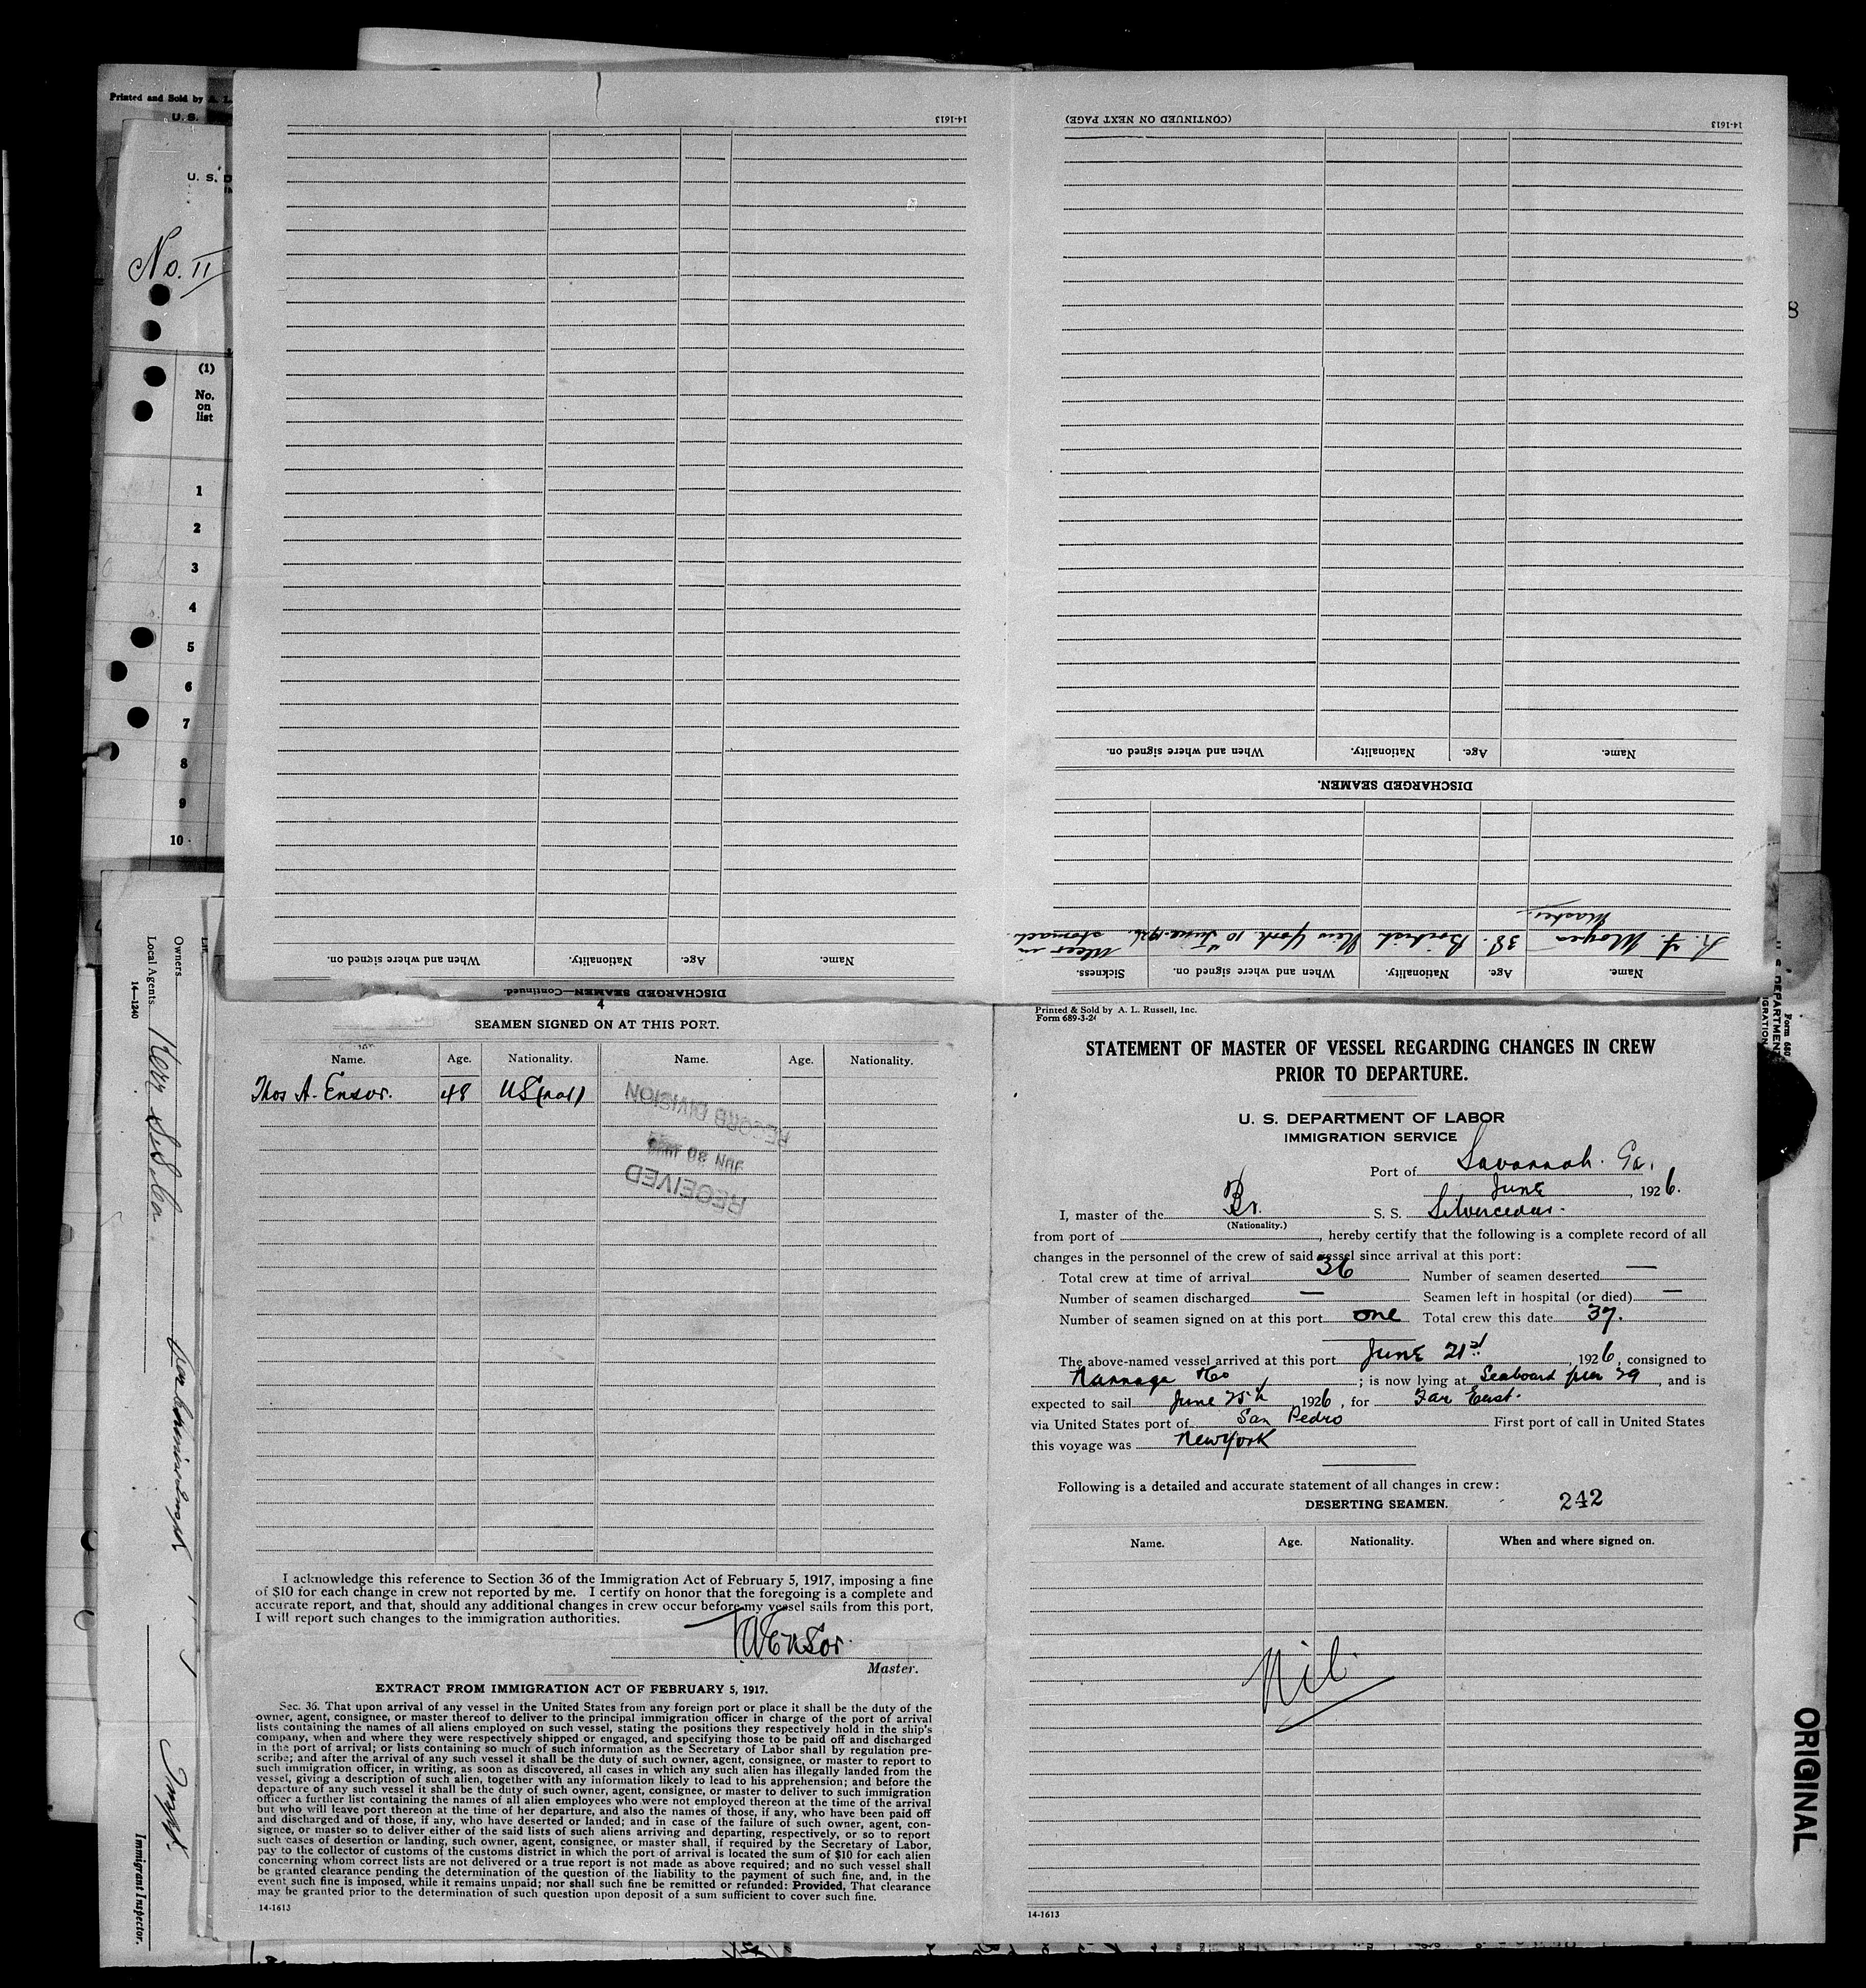 Printed & Sold by A. L. Russell, Inc.
Form 689-3-24
STATEMENT OF MASTER OF VESSEL REGARDING CHANGES IN CREW
PRIOR TO DEPARTURE.
U. S. DEPARTMENT OF LABOR
IMMIGRATION SERVICE
Port of Savannah. Ga.
June, 1926.
I, master of the Br. S. S. Silvercedar.
(Nationality.)
from port of , hereby certify that the following is a complete record of all
changes in the personnel of the crew of said vessel since arrival at this port:
Total crew at time of arrival 36 Number of seamen deserted —
Number of seamen discharged — Seamen left in hospital (or died) —
Number of seamen signed on at this port one Total crew this date 37.
The above-named vessel arrived at this port June 21st, 1926, consigned to
; is now lying at Seaboard pier 29, and is
expected to sail June 25th 1926, for Far East.
via United States port of San Pedro First port of call in United States
this voyage was New York
Following is a detailed and accurate statement of all changes in crew:
DESERTING SEAMEN. 242
Name. Age. Nationality. When and where signed on.
Nil
14-1613
Name. Age. Nationality. When and where signed on. Sickness.
38. British New York. 10th June 1926. Ulcer in
Master. stomach.
DISCHARGED SEAMEN.
Name. Age. Nationality. When and where signed on.
14-1613
(CONTINUED ON NEXT PAGE)
DISCHARGED SEAMEN—Continued.
Name. Age. Nationality. When and where signed on.
14-1613
4
SEAMEN SIGNED ON AT THIS PORT.
Name. Age. Nationality. Name. Age. Nationality.
Thos A. Ensor. 48 US(nat)
RECEIVED
JUN 30 1926
RECORD DIVISION
I acknowledge this reference to Section 36 of the Immigration Act of February 5, 1917, imposing a fine
of $10 for each change in crew not reported by me. I certify on honor that the foregoing is a complete and
accurate report, and that, should any additional changes in crew occur before my vessel sails from this port,
I will report such changes to the immigration authorities.
TAEnsor.
Master.
EXTRACT FROM IMMIGRATION ACT OF FEBRUARY 5, 1917.
Sec. 36. That upon arrival of any vessel in the United States from any foreign port or place it shall be the duty of the
owner, agent, consignee, or master thereof to deliver to the principal immigration officer in charge of the port of arrival
lists containing the names of all aliens employed on such vessel, stating the positions they respectively hold in the ship's
company, when and where they were respectively shipped or engaged, and specifying those to be paid off and discharged
in the port of arrival; or lists containing so much of such information as the Secretary of Labor shall by regulation pre-
scribe; and after the arrival of any such vessel it shall be the duty of such owner, agent, consignee, or master to report to
such immigration officer, in writing, as soon as discovered, all cases in which any such alien has illegally landed from the
vessel, giving a description of such alien, together with any information likely to lead to his apprehension; and before the
departure of any such vessel it shall be the duty of such owner, agent, consignee, or master to deliver to such immigration
officer a further list containing the names of all alien employees who were not employed thereon at the time of the arrival
but who will leave port thereon at the time of her departure, and also the names of those, if any, who have been paid off
and discharged and of those, if any, who have deserted or landed; and in case of the failure of such owner, agent, con-
signee, or master so to deliver either of the said lists of such aliens arriving and departing, respectively, or so to report
such cases of desertion or landing, such owner, agent, consignee, or master shall, if required by the Secretary of Labor,
pay to the collector of customs of the customs district in which the port of arrival is located the sum of $10 for each alien
concerning whom correct lists are not delivered or a true report is not made as above required; and no such vessel shall
be granted clearance pending the determination of the question of the liability to the payment of such fine, and, in the
event such fine is imposed, while it remains unpaid; nor shall such fine be remitted or refunded: Provided, That clearance
may be granted prior to the determination of such question upon deposit of a sum sufficient to cover such fine.
14-1613
Printed and Sold by A. L.
U. S.
U. S. D
No. II
(1)
No.
on
list
1
2
3
4
5
6
7
8
9
10
Owners
Local Agents
14—1240
Immigrant Inspector.
Form 680
ORIGINAL
8